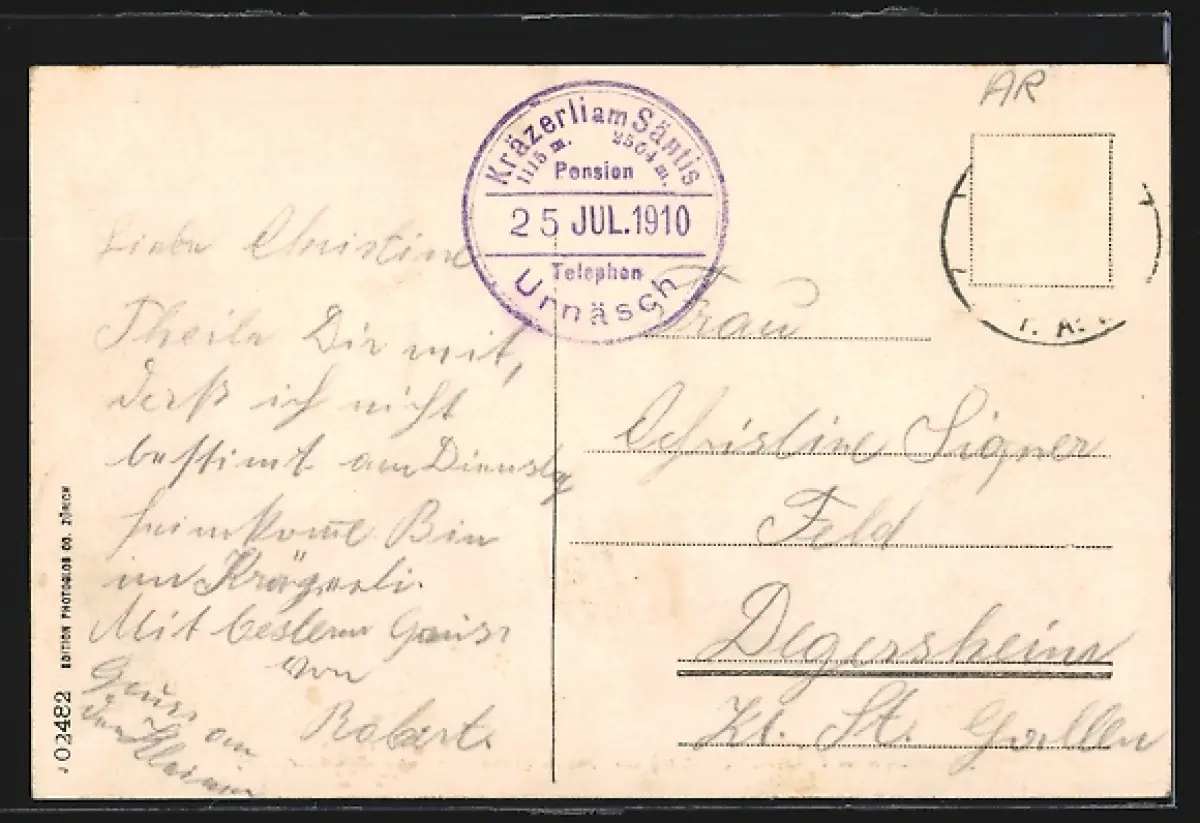 AR
Kräzerli am Säntis
1115 m. 2504 m.
Pension
25 JUL. 1910
Telephon
Urnäsch
Liebe Christine
Theile Dir mit,
daß ich nicht
bestimt am Dienstg
heimkom̅e Bin
im Kräzerli.
Mit bestem Gruss
von
Robert.
Gruss an
den Kleinen
Frau
Christine Signer
Feld
Degersheim
Kt. St. Gallen
EDITION PHOTOGLOB CO. ZÜRICH
02482